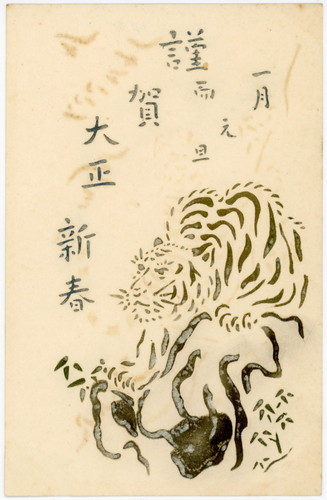 謹而
賀
大正
新春
一月
元旦